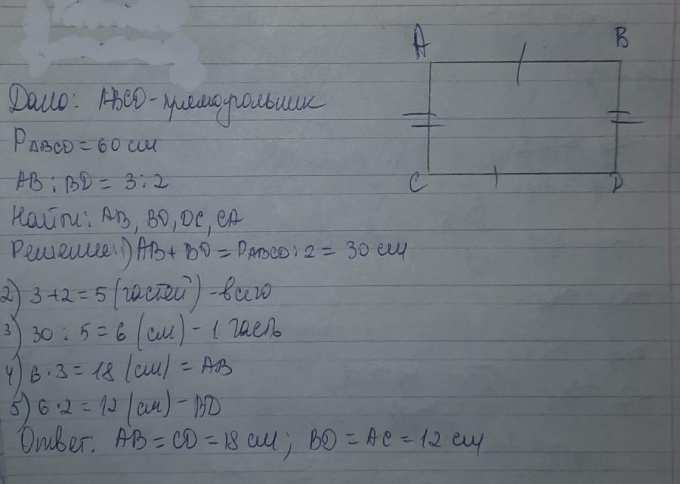 A B
Дано: ABCD - прямоугольник
PABCD = 60 см
AB : BD = 3 : 2
C D
Найти: AB, BD, DC, CA
Решение: 1) AB + BD = PABCD : 2 = 30 см
2) 3 + 2 = 5 (частей) - всего
3) 30 : 5 = 6 (см) - 1 часть
4) 6 · 3 = 18 (см) = AB
5) 6 · 2 = 12 (см) - BD
Ответ. AB = CD = 18 см; BD = AC = 12 см